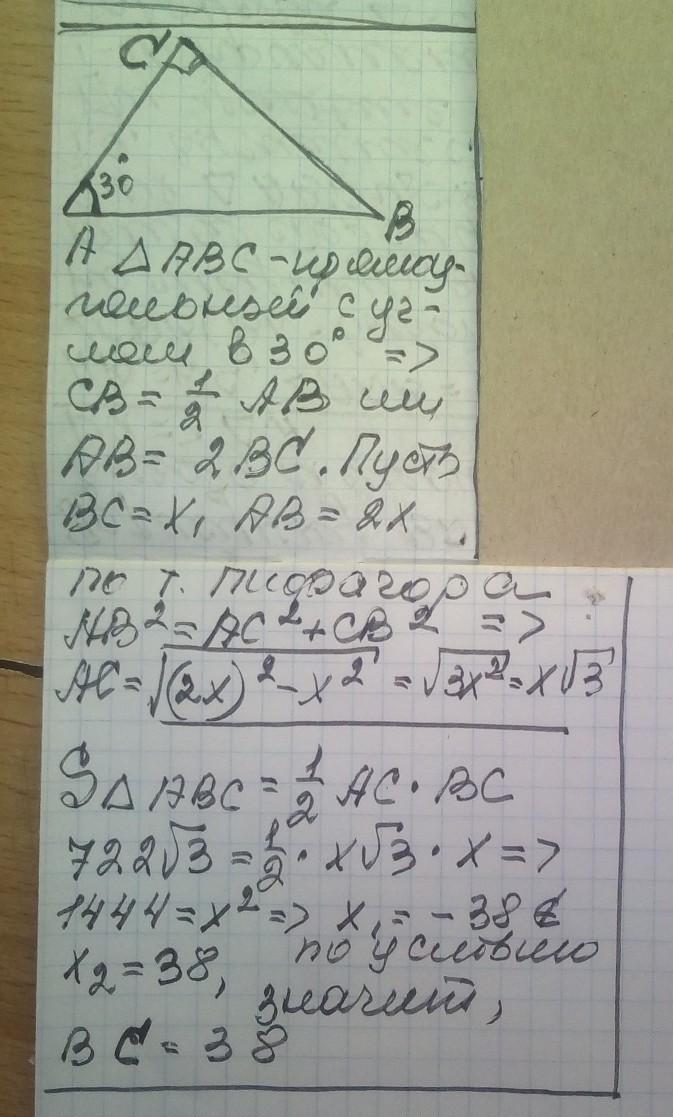 C
30°
A
B
△ABC - прямоу-
гольный с уг-
лом в 30° =>
CB = 1/2 AB или
AB = 2BC. Пусть
BC = x, AB = 2x
по т. Пифагора
AB² = AC² + CB² =>
AC = √((2x)² - x²) = √(3x²) = x√3
S△ABC = 1/2 AC · BC
722√3 = 1/2 · x√3 · x =>
1444 = x² => x₁ = -38 ∉
x₂ = 38, по условию
значит,
BC = 38